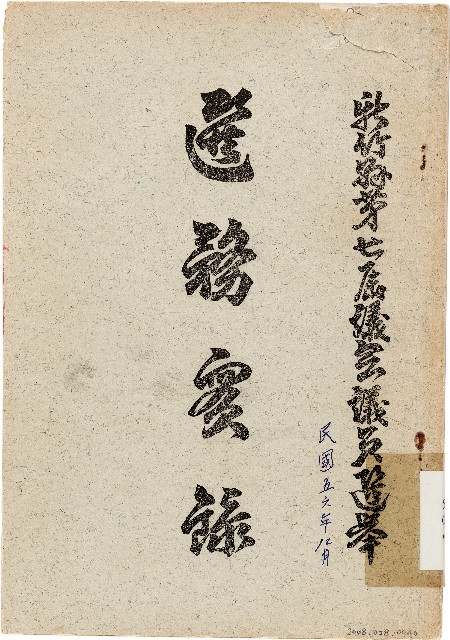 新竹縣第七屆議會議員選舉
選務實錄
民國五六年12月
2008.028.0046